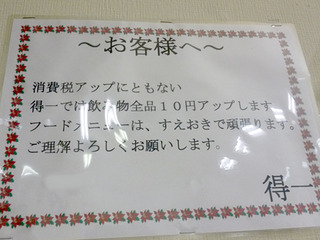 ～お客様へ～
消費税アップにともない
得一では飲み物全品１０円アップします。
フードメニューは、すえおきで頑張ります。
ご理解よろしくお願いします。
得一